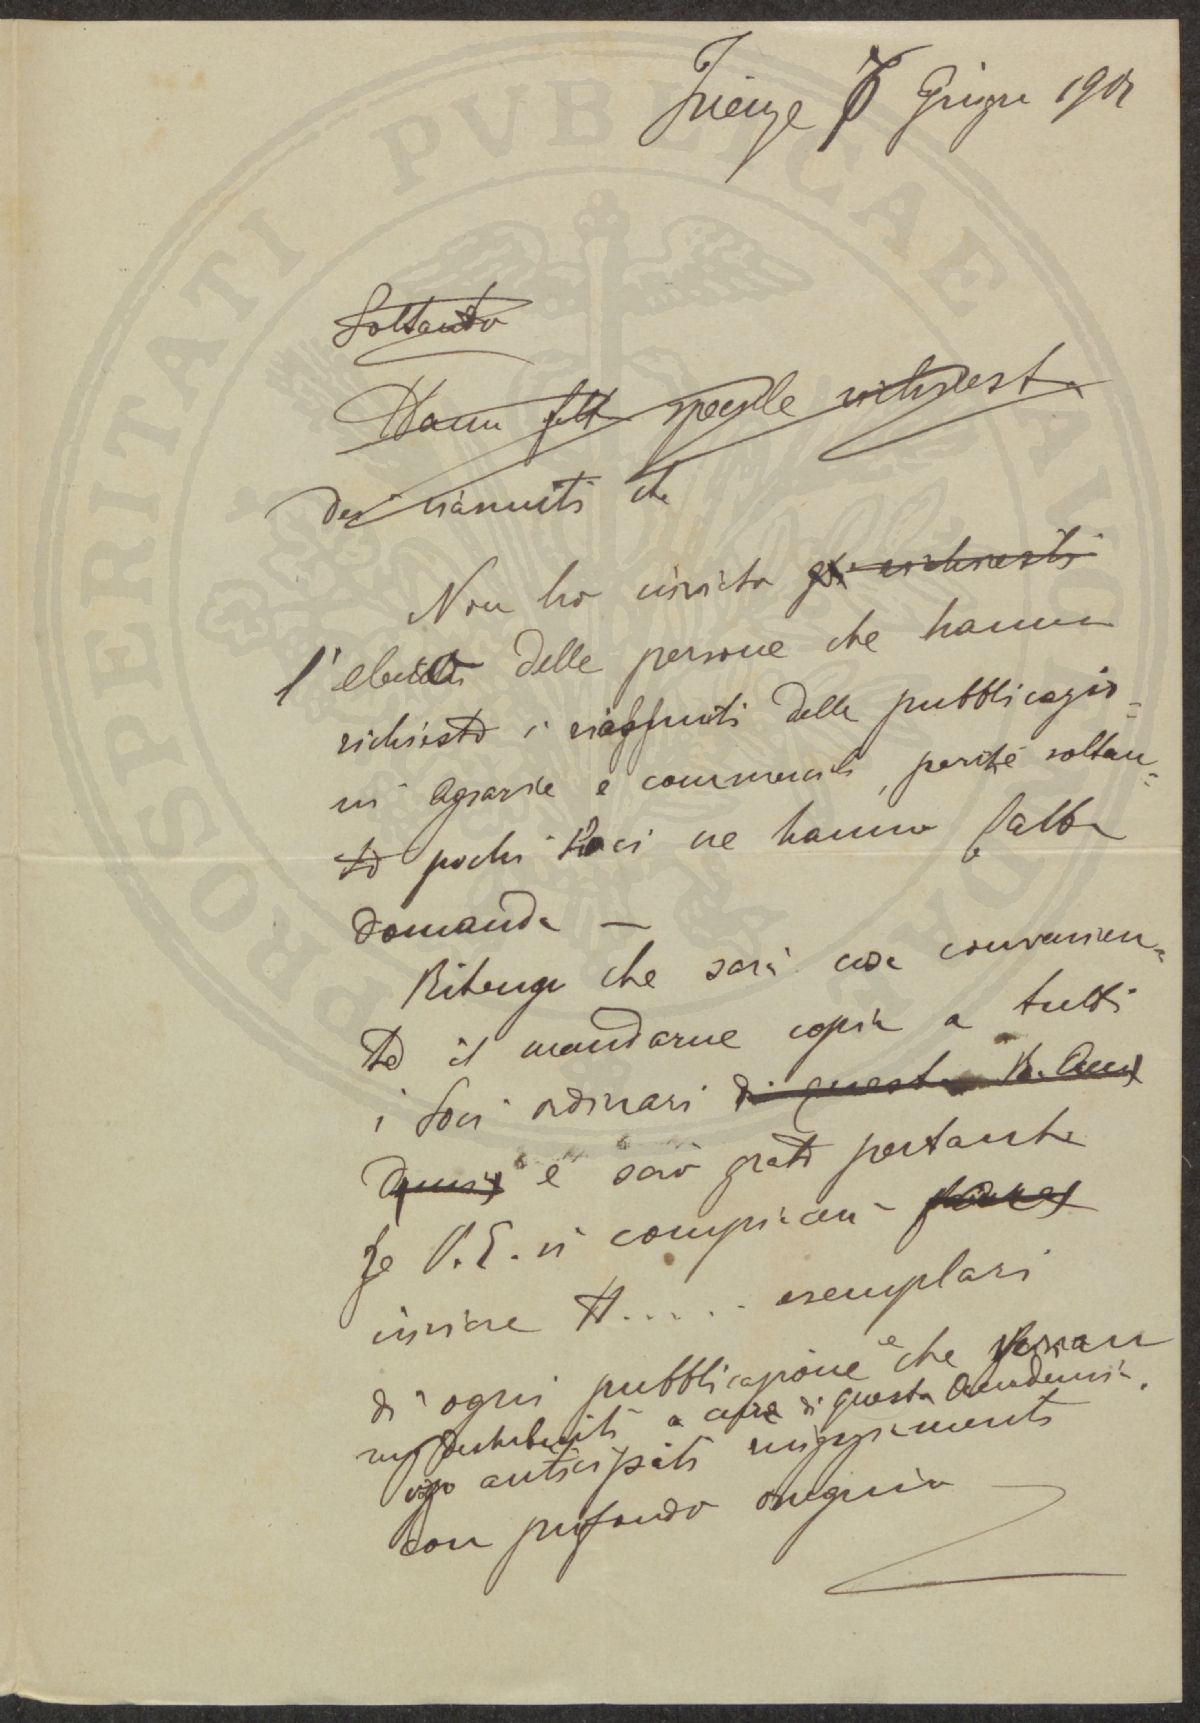 Firenze 7 Giugno 1901
Soltanto
Hanno fatto speciale richiesta
dei riassunti che
Non ho inviato gli richiesti
l'elenco delle persone che hanno
richiesto i riassunti delle pubblicazio=
ni agrarie e commerciali, perché soltan=
to pochi Soci ne hanno fatta
domanda —
Ritengo che sarà cosa convenien=
te il mandarne copia a tutti
i Soci ordinari di questa R. Acca
demia e sarò grato pertanto
se V. E. si compiacerà
inviare N..... esemplari
di ogni pubblicazione e che
distribuiti a cura di questa Accademia.
anticipati ringraziamenti
con profondo ossequio
PROSPERITATI PVBLICAE AVGENDAE